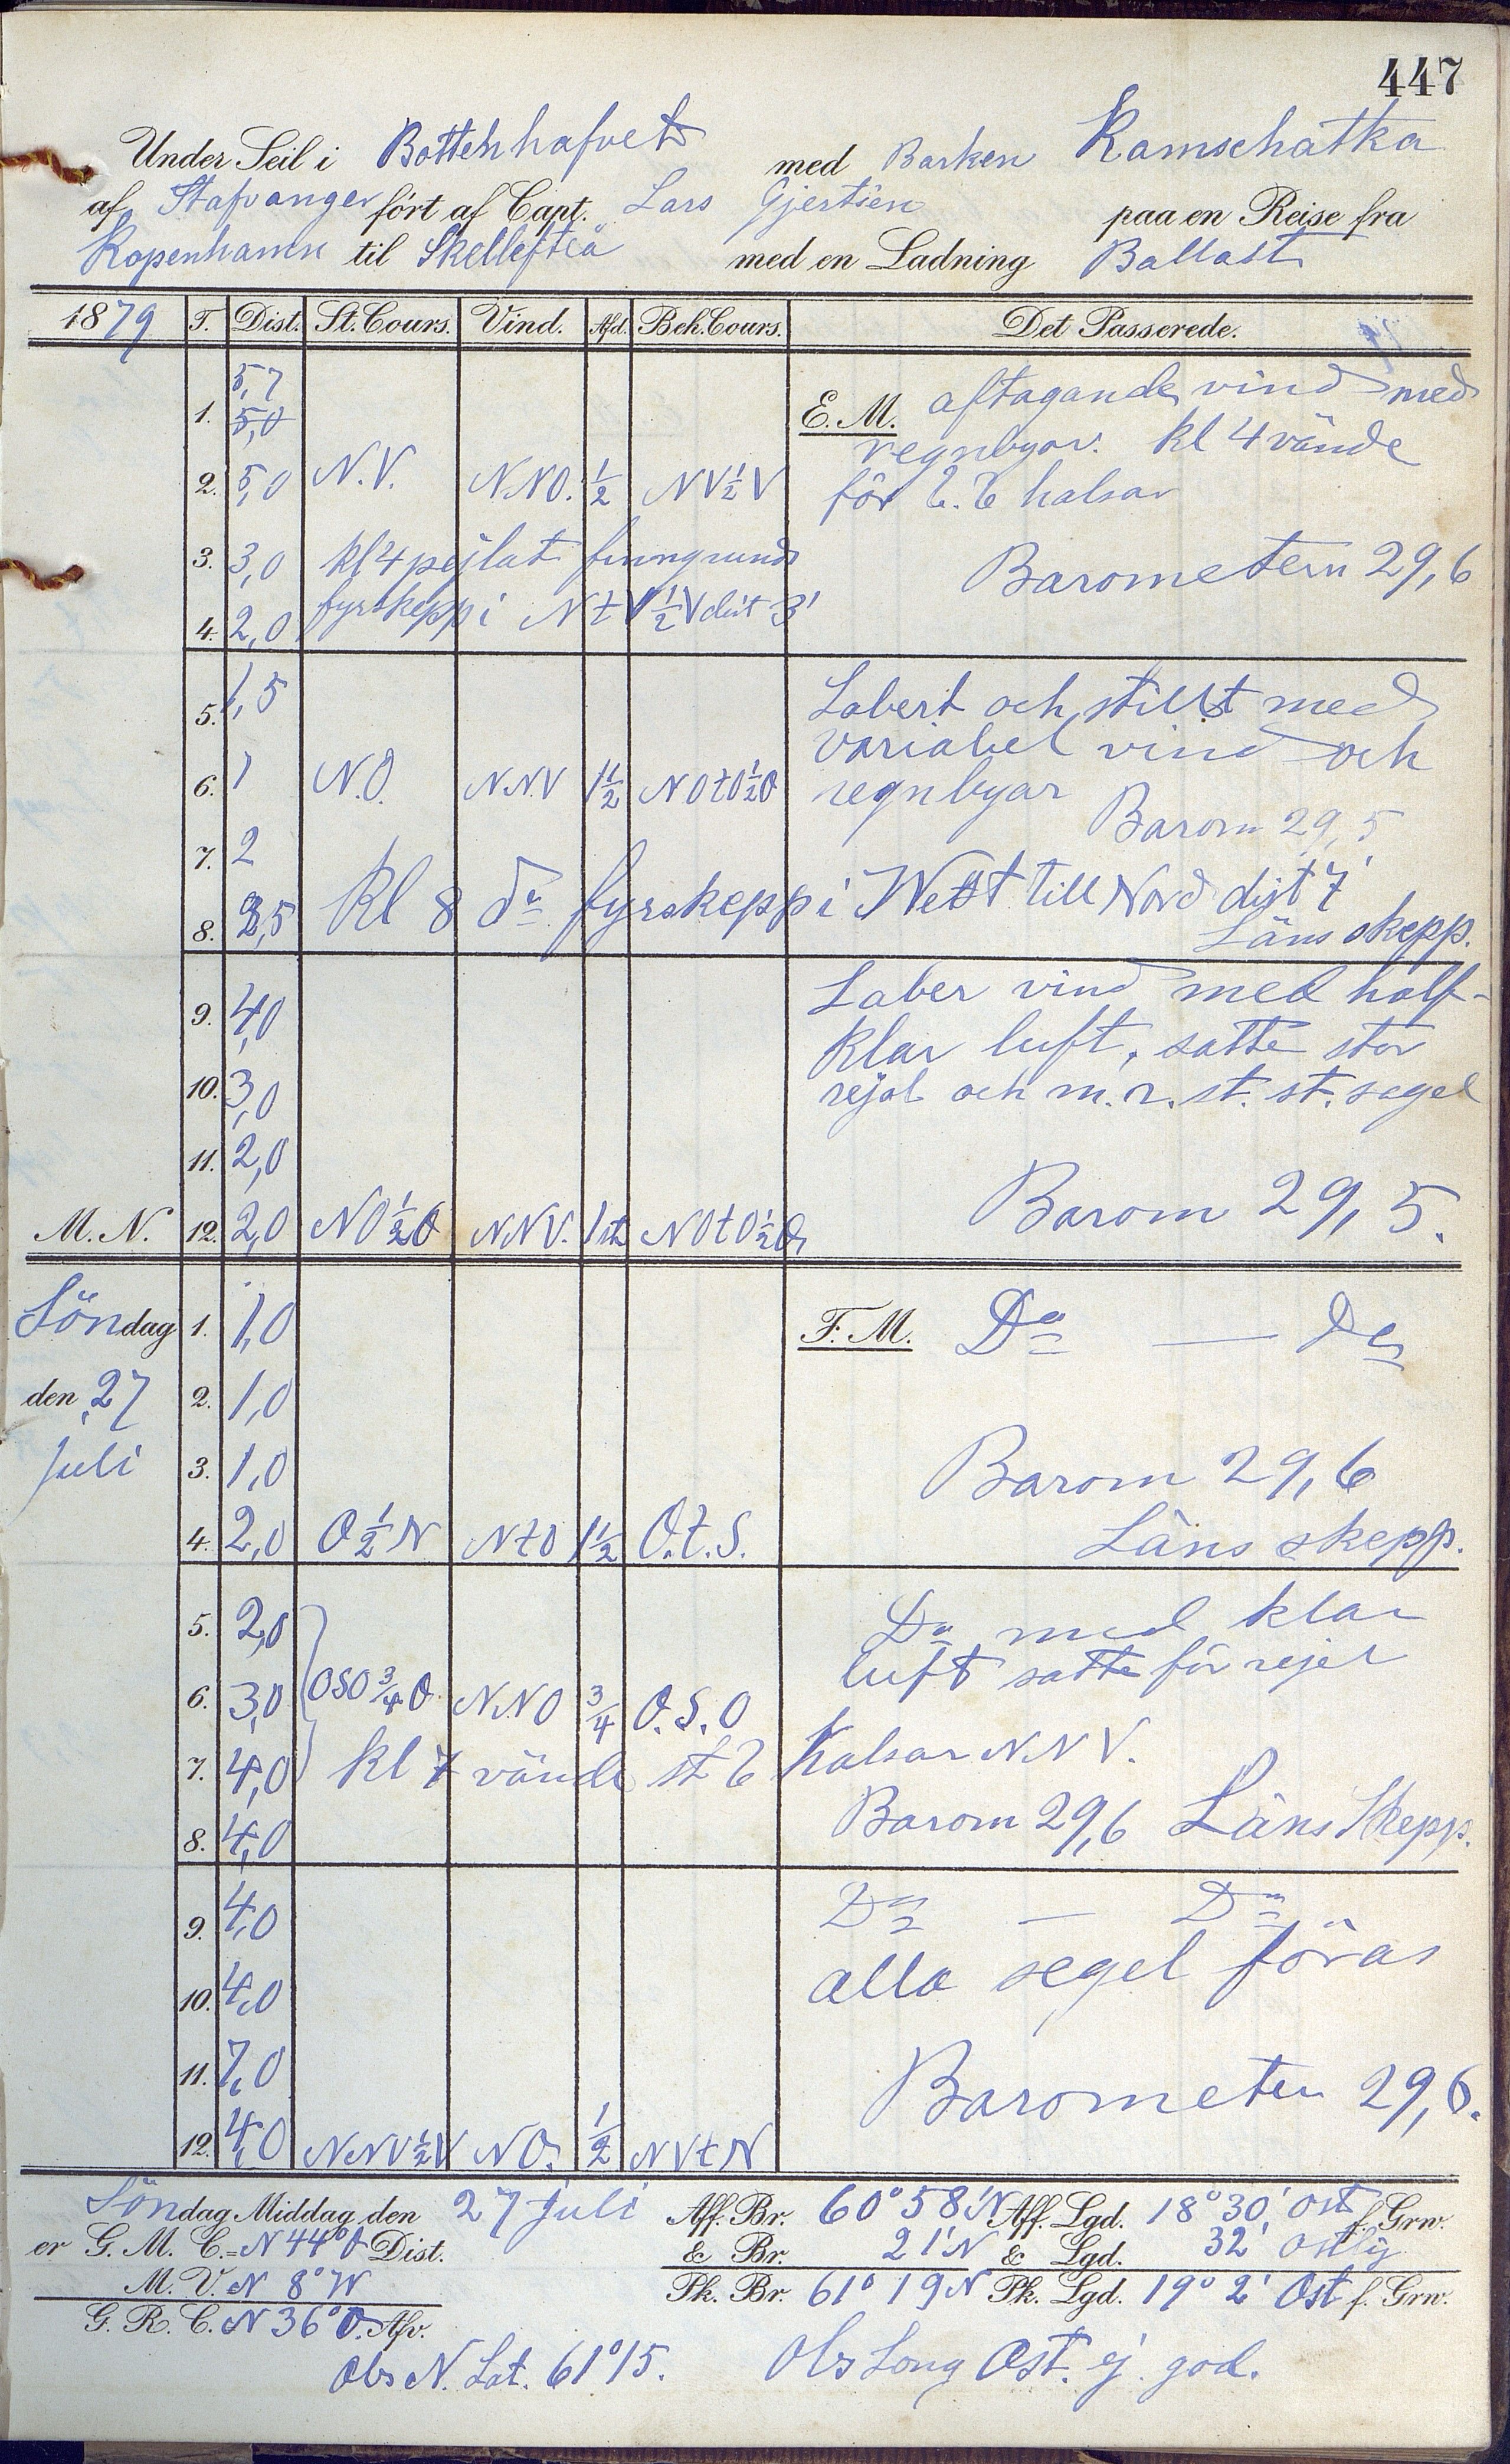 447
Under Seil i Bottenhafvet med Barken Kamschatka
af Stafvanger ført af Capt. Lars Gjertsen paa en Reise fra
Kopenhamn til Skellefteå med en Ladning Ballast
1879 T. Dist. St. Cours. Vind. Afd. Beh. Cours. Det Passerede.
5,7 E. M. aftagande vind med
1. 5,0 regnbyar. Kl 4 vände
2. 5,0 N.V. NNO. 1/2 NV 1/2 V för B.B halsar
3. 3,0 kl 4 pejlat finngrunds Barometern 29,6
4. 2,0 fyrskepp i NtV 1/2 V dist 3'
5. 1,5 Labert och stillt med
variabel vind och
6. 1 N.O. N.N.V 1 1/2 NOtO 1/2 O regnbyar
Barom 29,5
7. 2
8. 2,5 Kl 8 Do fyrskepp i West till Nord dist 7'
Läns skepp.
9. 4,0 Laber vind med half-
klar luft, satte stor
10. 3,0 rejel och m. r. st. st. segel
11. 2,0
M. N. 12. 2,0 NO 1/2 O NNV. 1 1/2 NOtO 1/2 O Barom 29,5.
Söndag 1. 1,0 F. M. Do — Do
den 27 2. 1,0
juli 3. 1,0 Barom 29,6
4. 2,0 O 1/2 N NtO 1 1/2 O.t.S. Läns skepp.
5. 2,0 Do med klar
luft satte för rejel
6. 3,0 OSO 3/4 O N.NO 3/4 O.S.O
7. 4,0 kl 7 vände st B halsar N N V.
8. 4,0 Barom 29,6 Läns Skepp.
9. 4,0 Do — Do
10. 4,0 alla segel föras
11. 7,0
12. 4,0 NNV 1/2 V NO. 1/2 NVtN Barometern 29,6.
Söndag Middag den 27 juli Aff. Br. 60° 58' N Aff. Lgd. 18° 30' Ost f. Grw.
er G. M. C. = N 44° O Dist. & Br. 21' N & Lgd. 32' Ostlig
M. V. N 8° W Pk. Br. 61° 19 N Pk. Lgd. 19° 2' Ost f. Grw.
G. R. C. N 36° O. Afv.
Obs N. Lat. 61° 15. Obs Long Ost. ej god.